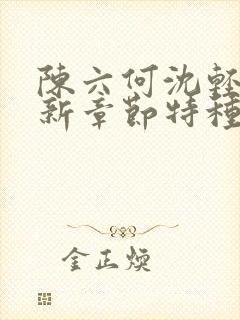 陳六何沈輕
新章節特種
金正煥